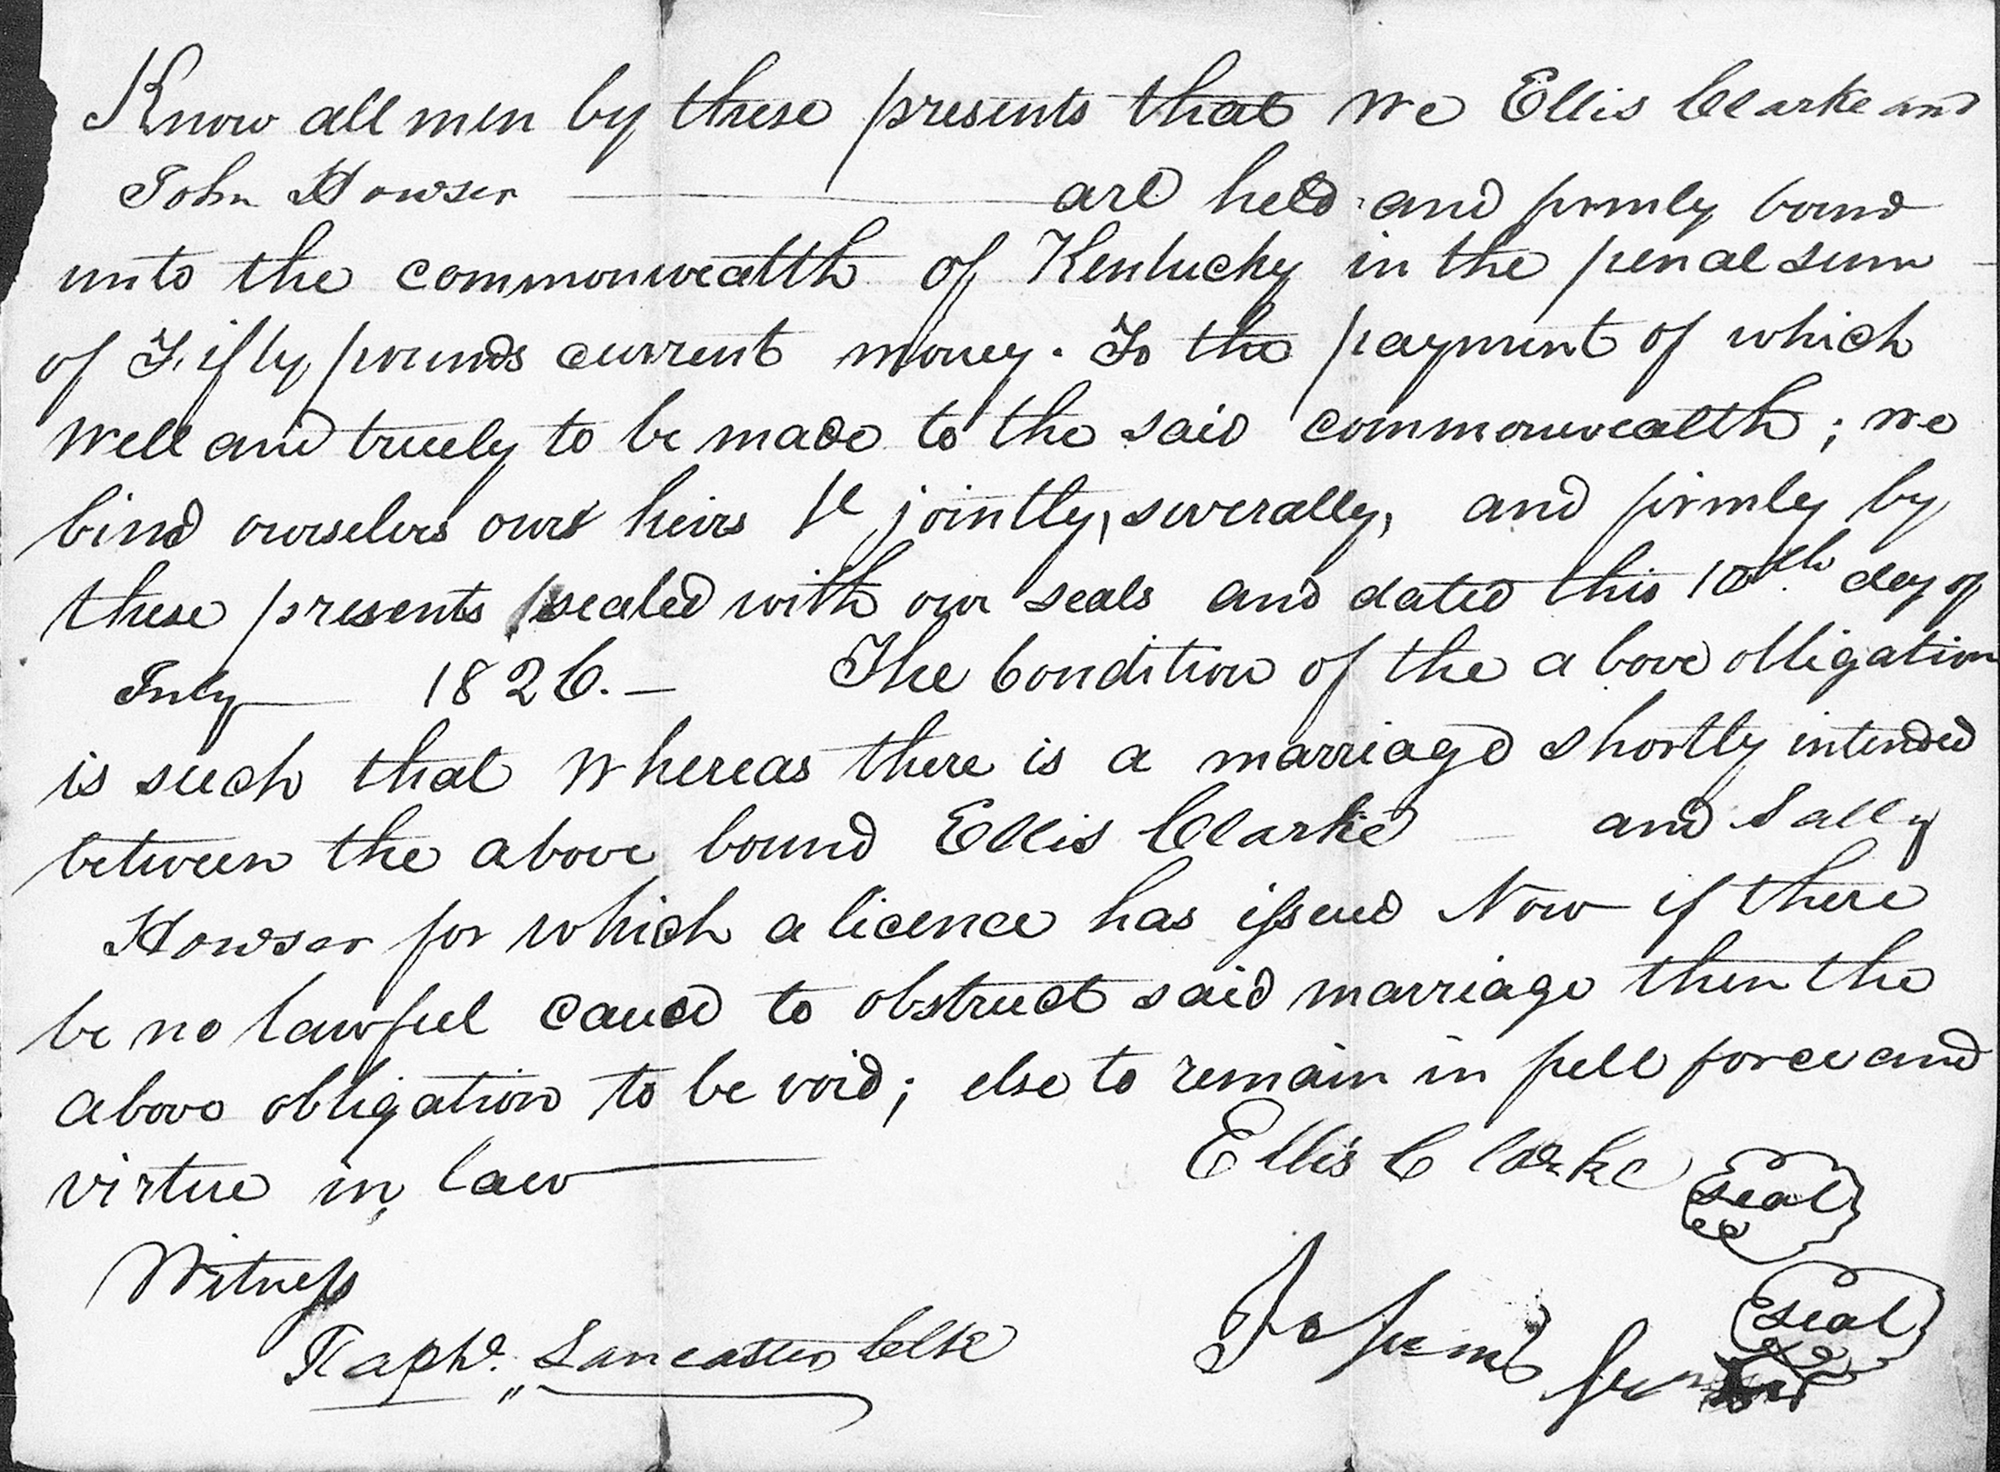 Know all men by these presents that we Ellis Clarke and
John Howser are held and firmly bound
unto the commonwealth of Kentucky in the penal sum
of Fifty pounds current money. To the payment of which
well and truely to be made to the said commonwealth; we
bind ourselves our heirs &c jointly, severally, and firmly by
these presents sealed with our seals and dated this 10th day of
July 1826. — The Condition of the above obligation
is such that whereas there is a marriage shortly intended
between the above bound Ellis Clarke and Sally
Howser for which a licence has issued Now if there
be no lawful cause to obstruct said marriage then the
above obligation to be void; else to remain in full force and
virtue in law
Ellis Clarke seal
Witness
seal
Raphd. Lancaster Clk